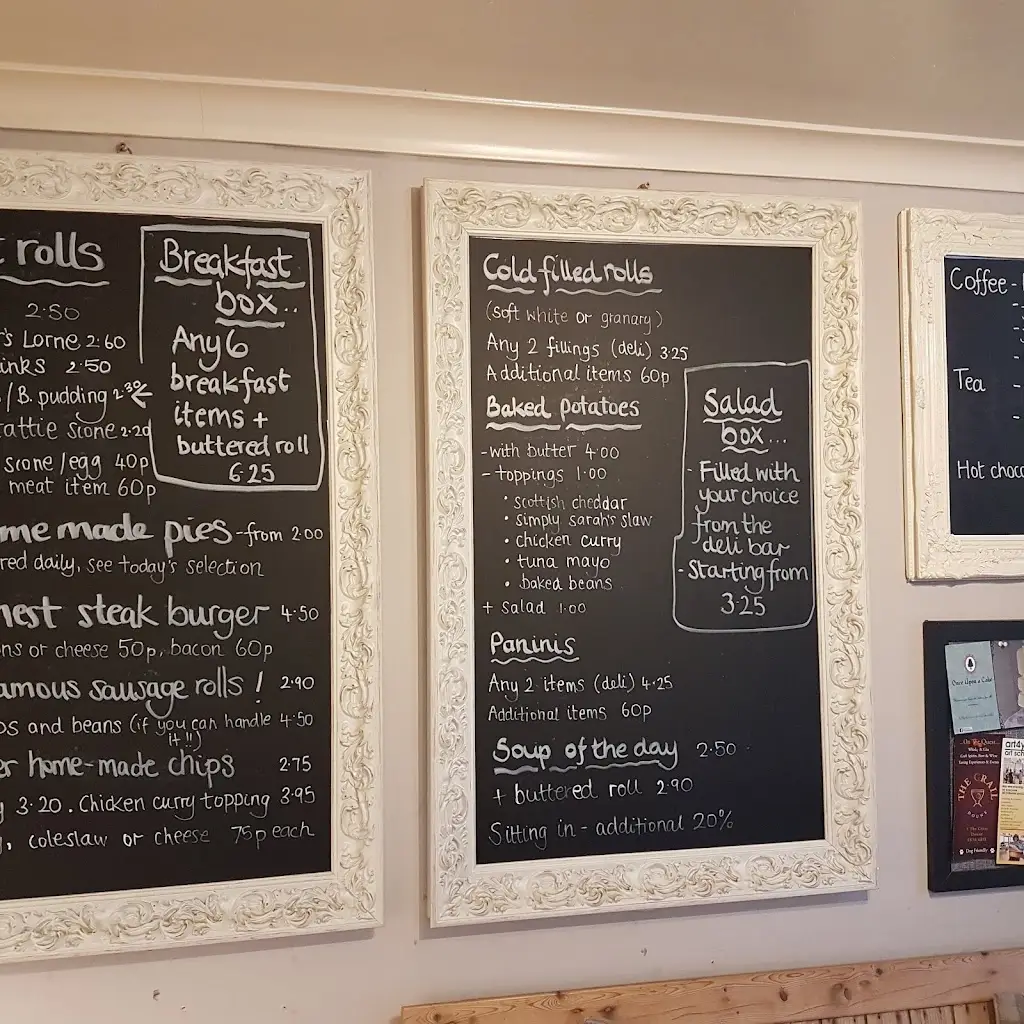 rolls
2.50
Lorne 2.60
2.50
/ B. pudding 2.30
Scone 2.20
scone /egg 40p
meat item 60p
Breakfast
box..
Any 6
breakfast
items +
buttered roll
6.25
me made pies - from 2.00
red daily, see today's selection
nest steak burger 4.50
ns or cheese 50p, bacon 60p
amous sausage rolls ! 2.90
os and beans (if you can handle 4.50
it!!)
er home-made chips 2.75
3.20. Chicken curry topping 3.95
, coleslaw or cheese 75p each
Cold filled rolls
(soft white or granary)
Any 2 fillings (deli) 3.25
Additional items 60p
Baked potatoes
- with butter 4.00
- toppings 1.00
• scottish cheddar
• simply sarah's slaw
• chicken curry
• tuna mayo
• baked beans
+ salad 1.00
Salad
box...
- Filled with
your choice
from the
deli bar
- Starting from
3.25
Paninis
Any 2 items (deli) 4.25
Additional items 60p
Soup of the day 2.50
+ buttered roll 2.90
Sitting in - additional 20%
Coffee -
Tea
Hot choc
Once Upon a Cake
THE GRAIL
Dog Friendly
art4y
art sch